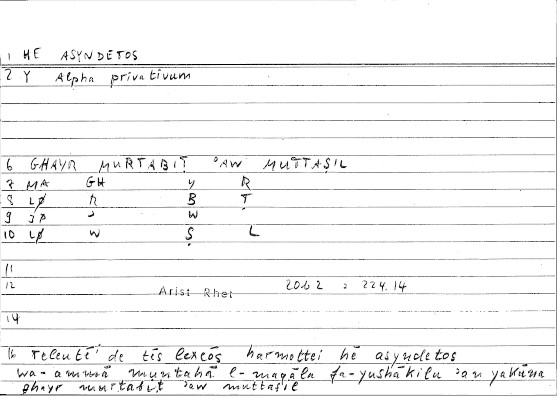 1 HE ASYNDETOS
2 Y Alpha privativum
6 GHAYR MURTABIṬ ʾAW MUTTAṢIL
7 MA GH Y R
8 LØ R B Ṭ
9 ʾ W
10 LØ W Ṣ L
11
12 Arist Rhet 20b2 : 224.14
14
16 teleutḗ de tēs lexeōs harmottei hē asyndetos
wa-ʾammā muntahā l-maqāla fa-yushākilu ʾan yakūna
ghayr murtabiṭ ʾaw muttaṣil